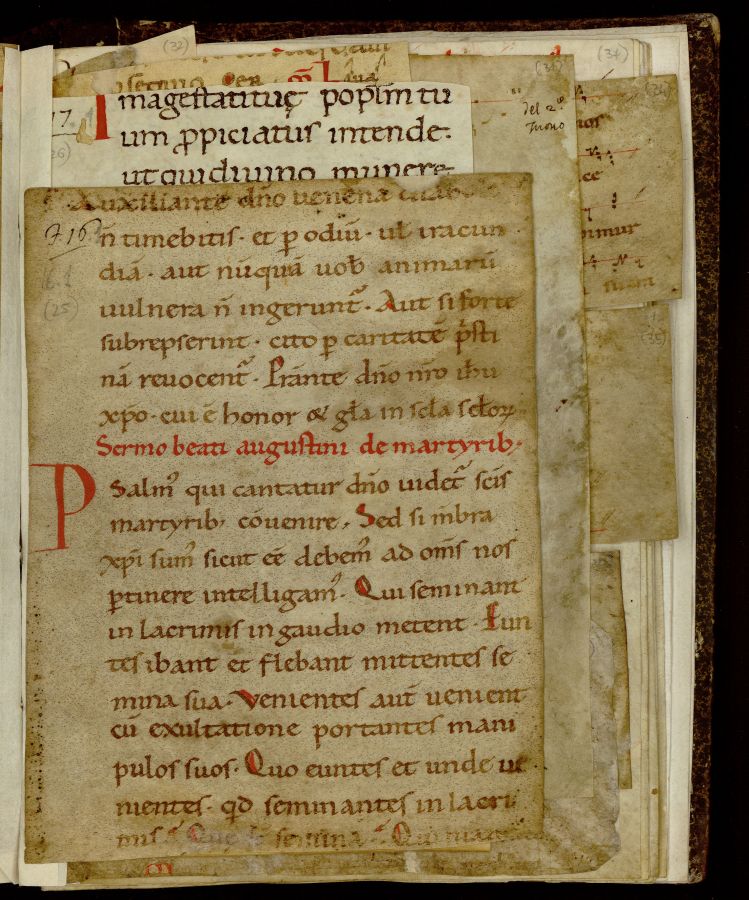 (32)
(34)
17.
magestatituę popłm tu
um ꝓpiciatus intende·
ut qui diuino munere
(26)
del 2º
Tuono
Auxiliante dño venena
f 16
ñ timebitis · et ꝑ odiū · uł iracun
diā · aut nūquā uob̄ animarū
(25)
uulnera ñ ingerunt̃ · Aut si forte
subrepserint · cito ꝑ caritatē p̄sti
nā reuocent̃ · P̄stante dño nr̄o ih̄u
xp̄o · cui ē honor & gła in scła scłoꝝ
Sermo beati augustini de martyrib;
Psalm᾽ qui cantatur dño uidet̃ scīs
martyrib; cōuenire, Sed si m̄bra
xp̄i sum᾽ sicut eē debem᾽ ad om̄s nos
ꝑtinere intelligam᾽ · Qui seminant
in lacrimis in gaudio metent · Eun
tes ibant et flebant mittentes se
mina sua · Venientes aut̄ uenient
cū exultatione portantes mani
pulos suos · Quo euntes et unde ue
nientes · qd̄ seminantes in lacri
mis semina